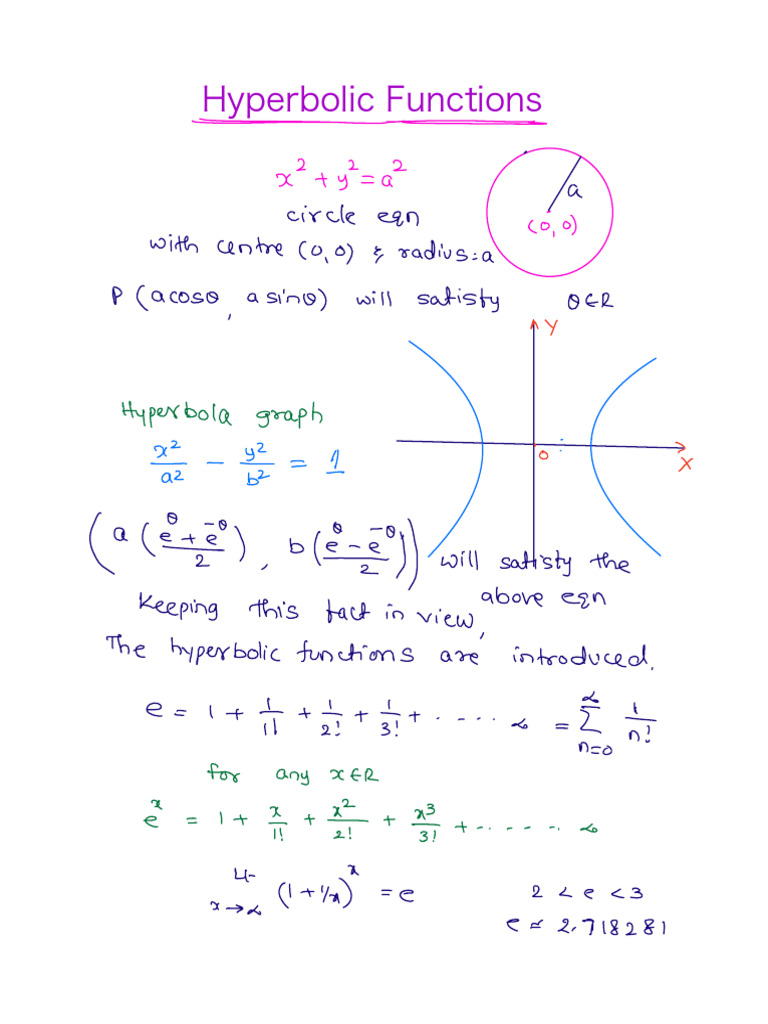 Hyperbolic Functions
x² + y² = a²
a
(0, 0)
circle eqn
with centre (0, 0) & radius = a
P (a cosθ, a sinθ) will satisfy θ∈R
Y
Hyperbola graph
x²/a² − y²/b² = 1
O
X
(a (e^θ + e^−θ)/2, b (e^θ − e^−θ)/2) will satisfy the
above eqn
Keeping this fact in view,
The hyperbolic functions are introduced.
e = 1 + 1/1! + 1/2! + 1/3! + ..... ∞ = ∑_{n=0}^{∞} 1/n!
for any x∈R
e^x = 1 + x/1! + x²/2! + x³/3! + ....... ∞
Lt_{x→∞} (1 + 1/x)^x = e
2 < e < 3
e ≃ 2.718281